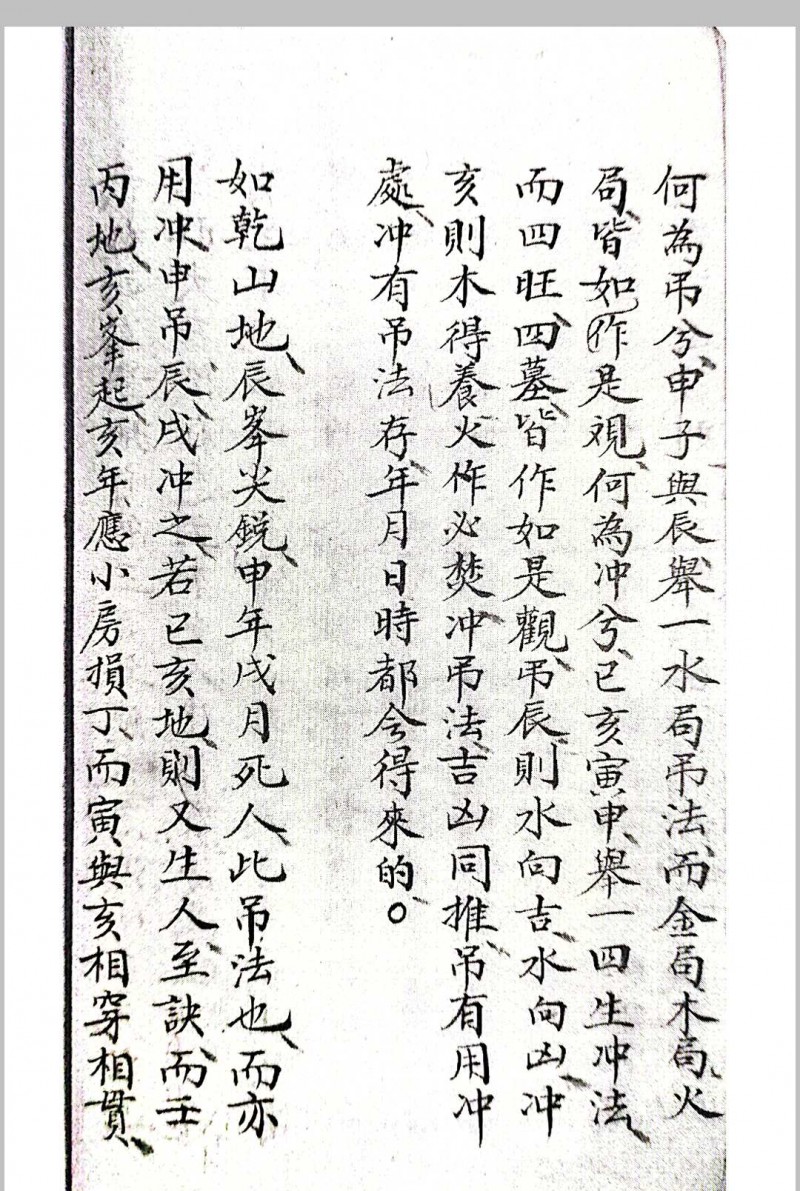 何為吊兮申子與辰舉一水局吊法而金局木局火
局皆如作是視何為冲兮已亥寅申舉一四生冲法
而四旺四墓皆作如是觀吊辰則水向吉水向凶冲
亥則木得養火作必焚冲吊法吉凶同推吊有用冲
處冲有吊法存年月日時都令得來的。
如乾山地辰峯尖銳申年戌月死人此吊法也而亦
用冲申吊辰戌冲之若已亥地則又生人至訣而壬
丙地亥峯起亥年應小房損丁而寅與亥相穿相貫